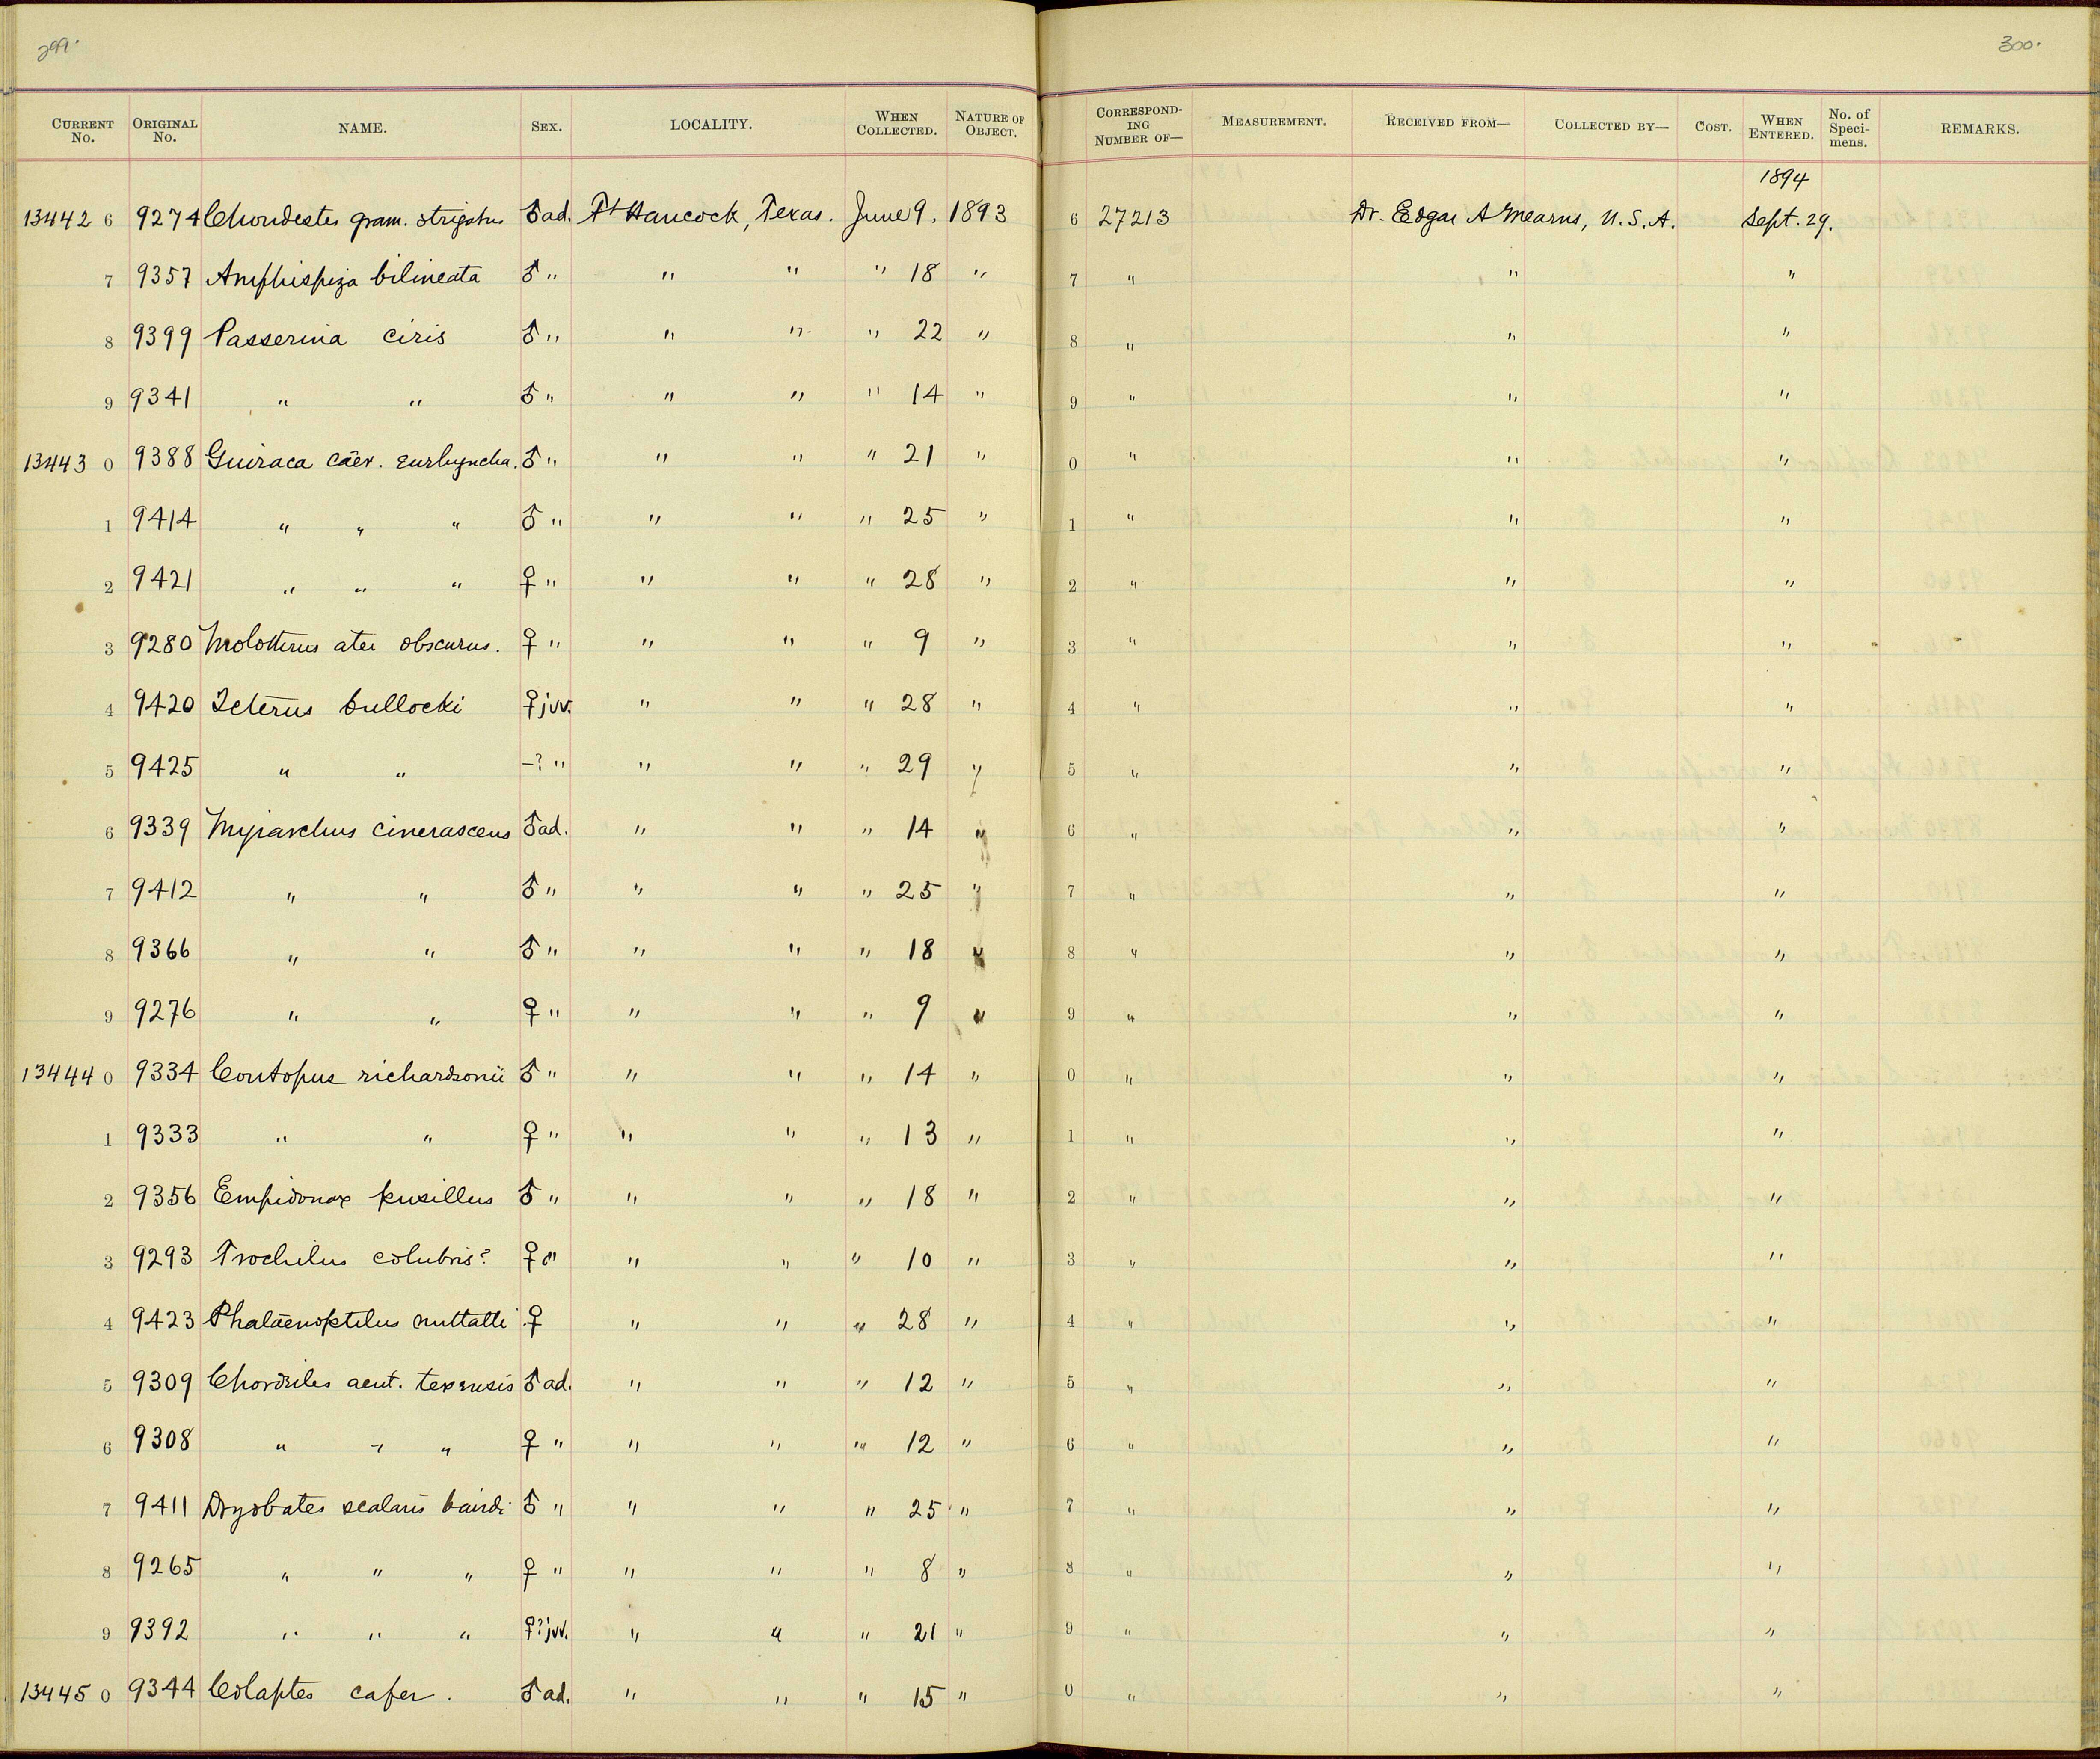 299.
300.
CURRENT No. ORIGINAL No. NAME. SEX. LOCALITY. WHEN COLLECTED. NATURE OF OBJECT. CORRESPONDING NUMBER OF— MEASUREMENT. RECEIVED FROM— COLLECTED BY— COST. WHEN ENTERED. No. of Specimens. REMARKS.
1894
13442 6 9274 Chondestes gram. strigatus ♂ ad. Ft Hancock, Texas. June 9, 1893 6 27213 Dr. Edgar A Mearns, U.S.A. Sept. 29.
7 9357 Amphispiza bilineata ♂ " " " " 18 " 7 " " "
8 9399 Passerina ciris ♂ " " " " 22 " 8 " " "
9 9341 " " ♂ " " " " 14 " 9 " " "
13443 0 9388 Guiraca cäer. eurhyncha. ♂ " " " " 21 " 0 " " "
1 9414 " " " ♂ " " " " 25 " 1 " " "
2 9421 " " " ♀ " " " " 28 " 2 " " "
3 9280 Molothrus ater obscurus. ♀ " " " " 9 " 3 " " "
4 9420 Icterus bullocki ♀ juv. " " " 28 " 4 " " "
5 9425 " " –? " " " " 29 " 5 " " "
6 9339 Myiarchus cinerascens ♂ ad. " " " 14 " 6 " " "
7 9412 " " ♂ " " " " 25 " 7 " " "
8 9366 " " ♂ " " " " 18 " 8 " " "
9 9276 " " ♀ " " " " 9 " 9 " " "
13444 0 9334 Contopus richardsonii ♂ " " " " 14 " 0 " " "
1 9333 " " ♀ " " " " 13 " 1 " " "
2 9356 Empidonax pusillus ♂ " " " " 18 " 2 " " "
3 9293 Trochilus colubris? ♀ " " " " 10 " 3 " " "
4 9423 Phaläenoptilus nuttalli ♀ " " " 28 " 4 " " "
5 9309 Chordeiles acut. texensis ♂ ad. " " " 12 " 5 " " "
6 9308 " " " ♀ " " " " 12 " 6 " " "
7 9411 Dryobates scalaris bairdi ♂ " " " " 25 " 7 " " "
8 9265 " " " ♀ " " " " 8 " 8 " " "
9 9392 " " " ♀? juv. " " " 21 " 9 " " "
13445 0 9344 Colaptes cafer. ♂ ad. " " " 15 " 0 " " "